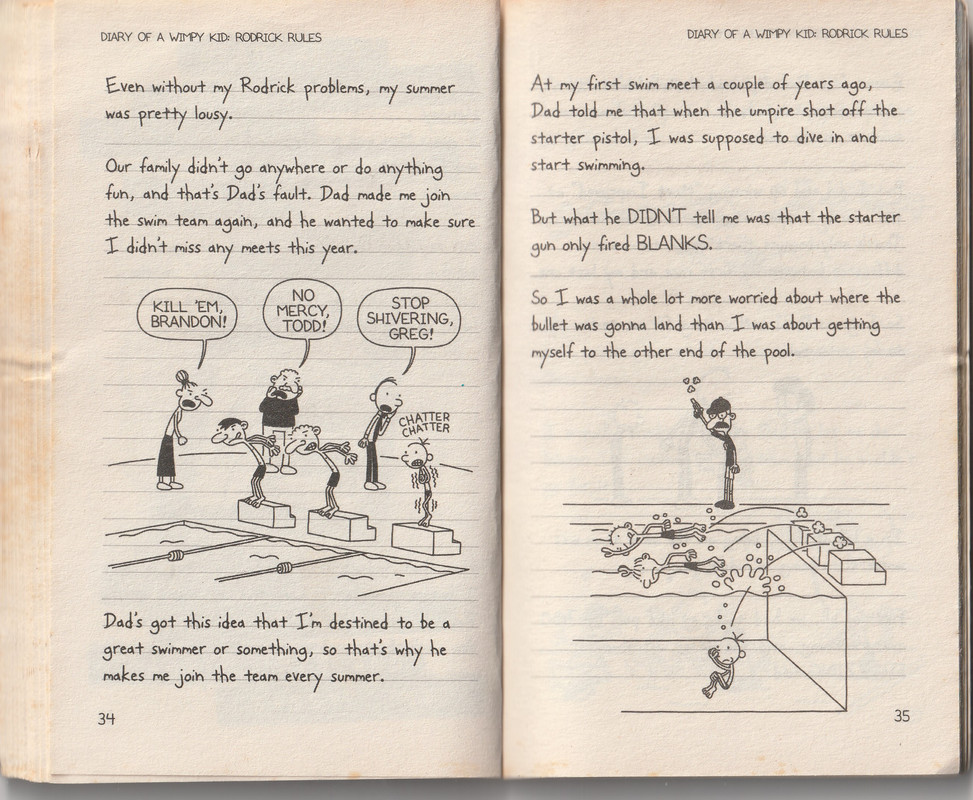 DIARY OF A WIMPY KID: RODRICK RULES
Even without my Rodrick problems, my summer
was pretty lousy.
Our family didn't go anywhere or do anything
fun, and that's Dad's fault. Dad made me join
the swim team again, and he wanted to make sure
I didn't miss any meets this year.
KILL 'EM,
BRANDON!
NO
MERCY,
TODD!
STOP
SHIVERING,
GREG!
CHATTER
CHATTER
Dad's got this idea that I'm destined to be a
great swimmer or something, so that's why he
makes me join the team every summer.
34
DIARY OF A WIMPY KID: RODRICK RULES
At my first swim meet a couple of years ago,
Dad told me that when the umpire shot off the
starter pistol, I was supposed to dive in and
start swimming.
But what he DIDN'T tell me was that the starter
gun only fired BLANKS.
So I was a whole lot more worried about where the
bullet was gonna land than I was about getting
myself to the other end of the pool.
35